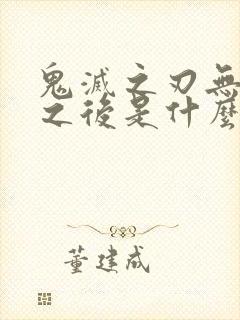 鬼滅之刃無
之後是什麼
董建成